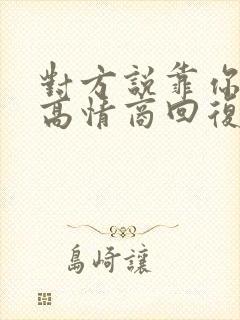 對方說靠你
高情商回復
島崎讓